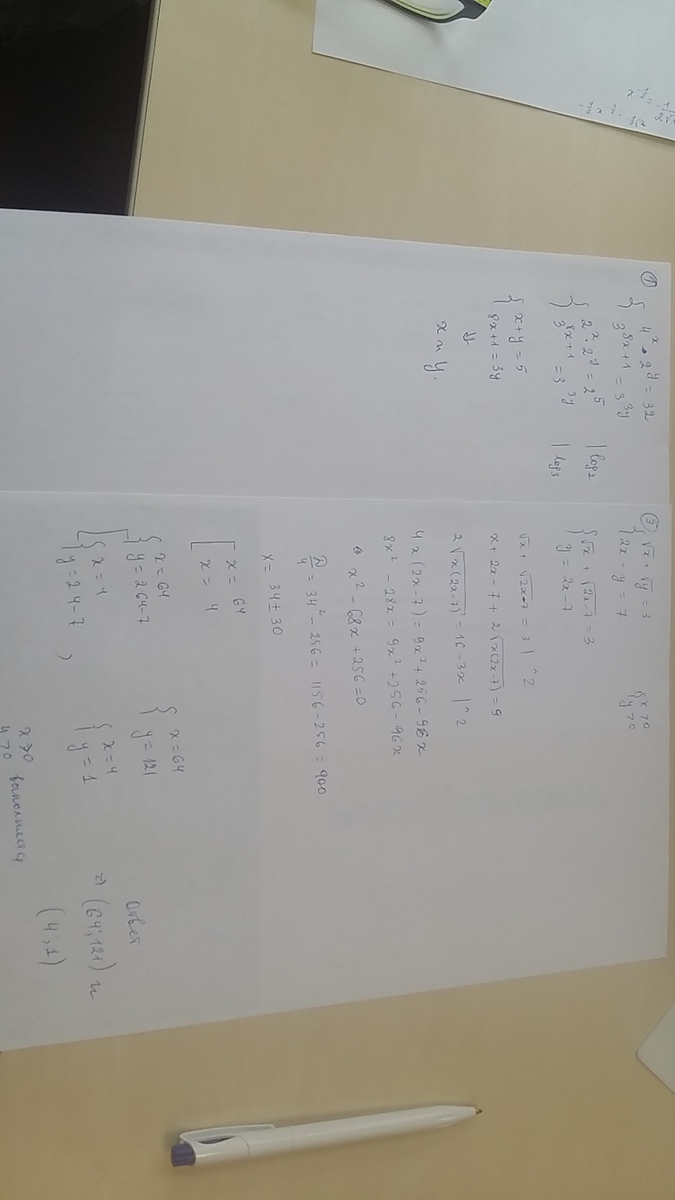 ①
{ 4^x · 2^y = 32
3^{8x+1} = 3^{3y}
{ 2^x · 2^y = 2^5 | log2
3^{8x+1} = 3^{3y} | log3
{ x+y=5
8x+1=3y
⇓
x и y.
③
{ √x + √y = 3
2x - y = 7
{ x>0
y>0
{ √x + √(2x-7) = 3
y = 2x-7
√x + √(2x-7) = 3 | ^2
x + 2x - 7 + 2√(x(2x-7)) = 9
2√(x(2x-7)) = 16 - 3x | ^2
4x(2x-7) = 9x² + 256 - 96x
8x² - 28x = 9x² + 256 - 96x
x² - 68x + 256 = 0
D/4 = 34² - 256 = 1156 - 256 = 900
x = 34 ± 30
[ x = 64
x = 4
[ { x = 64
y = 2 64-7
{ x = 4
y = 2 4-7 ,
{ x = 64
y = 121
{ x = 4
y = 1
x>0
y>0 выполняется
Ответ
⇒ (64; 121) и
(4; 1)